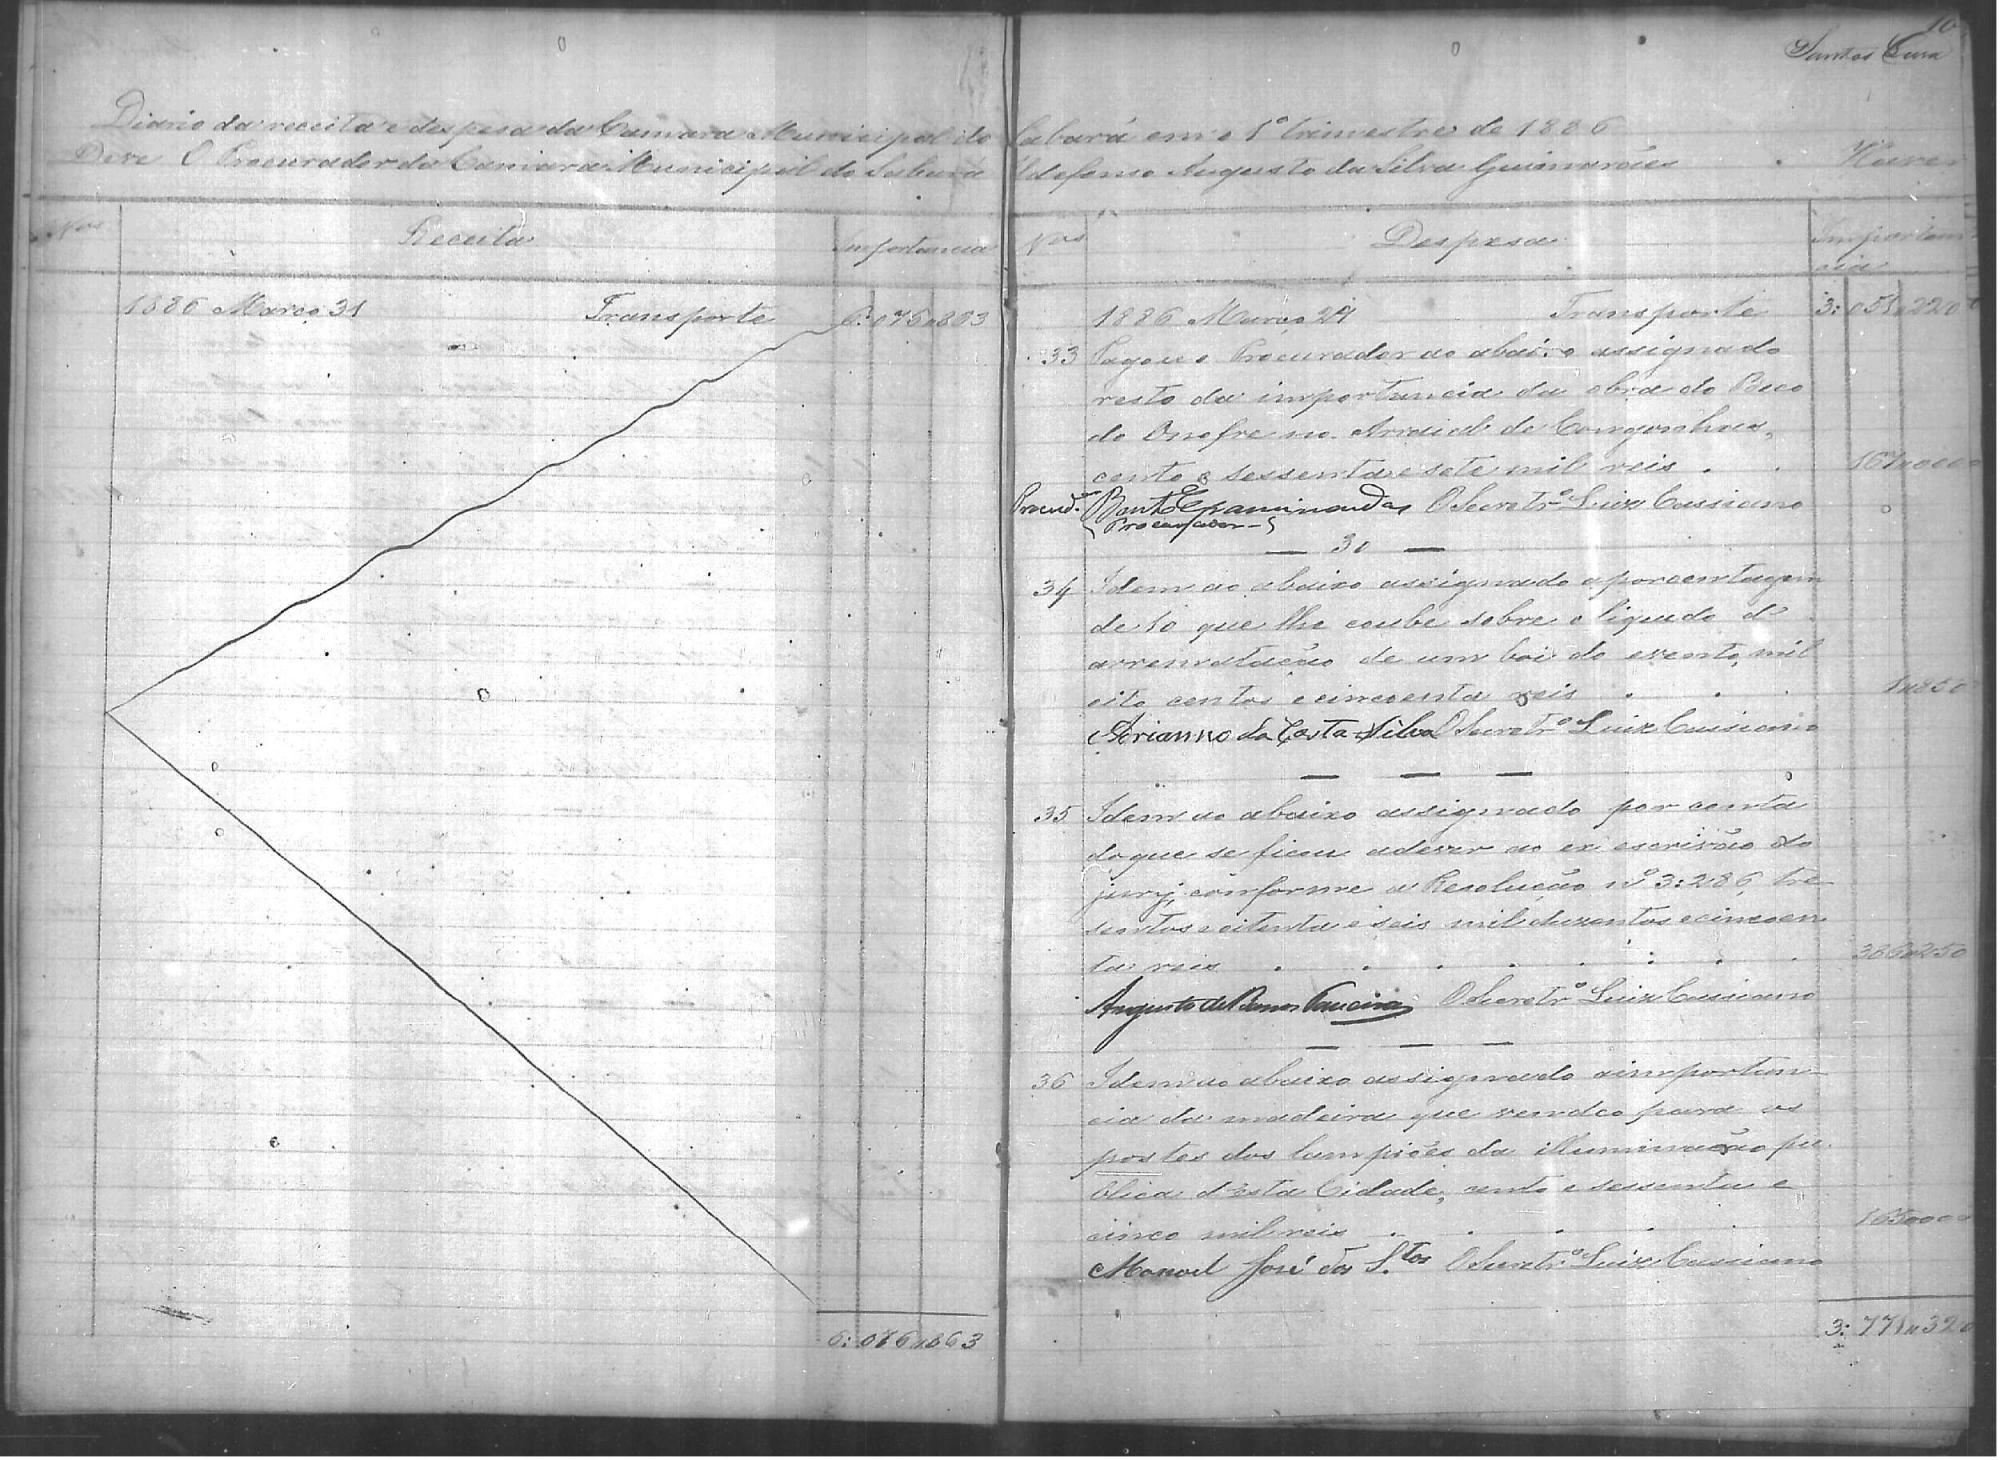 10
Santos Cura
Diario da receita e despesa da Camara Municipal do Sabará em o 1º trimestre de 1886
Deve O Procurador da Camara Municipal do Sabará Ildefonso Augusto da Silva Guimarães Haver
Nos Receita Importancia
1886 Março 31 Transporte 6:076$863
6:076$863
Nos Despesa Importan
cia
1886 Março 24 Transporte 3:051$220
33 Pagou o Procurador ao abaixo assignado
resto da importancia da obra do Beco
do Onofre no Arraial de Congonhas,
cento e sessenta e sete mil reis . . 167$000
Procudor Bento Epaminondas O Secretrº Luiz Cassiano
Procurador
— 30 —
34 Idem ao abaixo assignado a porcentagem
de 10 que lhe coube sobre o liquido d'
arrematação de um boi do evento, mil
oito centos e cincoenta reis . . . 1$850
Adrianno da Costa Silva O Secretrº Luiz Cassiano
— — —
35 Idem ao abaixo assignado por conta
do que se ficou a dever ao ex escrivão do
jury, conforme a Resolução nº 3:286, tre
sentos e oitenta e seis mil duzentos e cincoen
ta reis . . . . . . . . 386$250
Augusto de O Secretrº Luiz Cassiano
— — —
36 Idem ao abaixo assignado a importan-
cia da madeira que vendeo para os
postes dos lampiões da illuminação pu
blica d'esta Cidade, cento e sessenta e
cinco mil reis . . . . . 165$000
Manoel José dos S.tos O Secretrº Luiz Cassiano
3:771$320